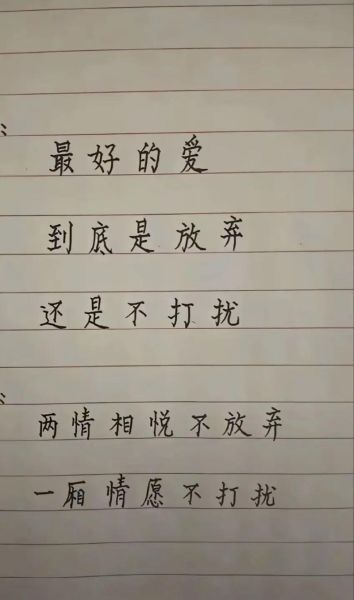 最好的爱
到底是放弃
还是不打扰
两情相悦不放弃
一厢情愿不打扰